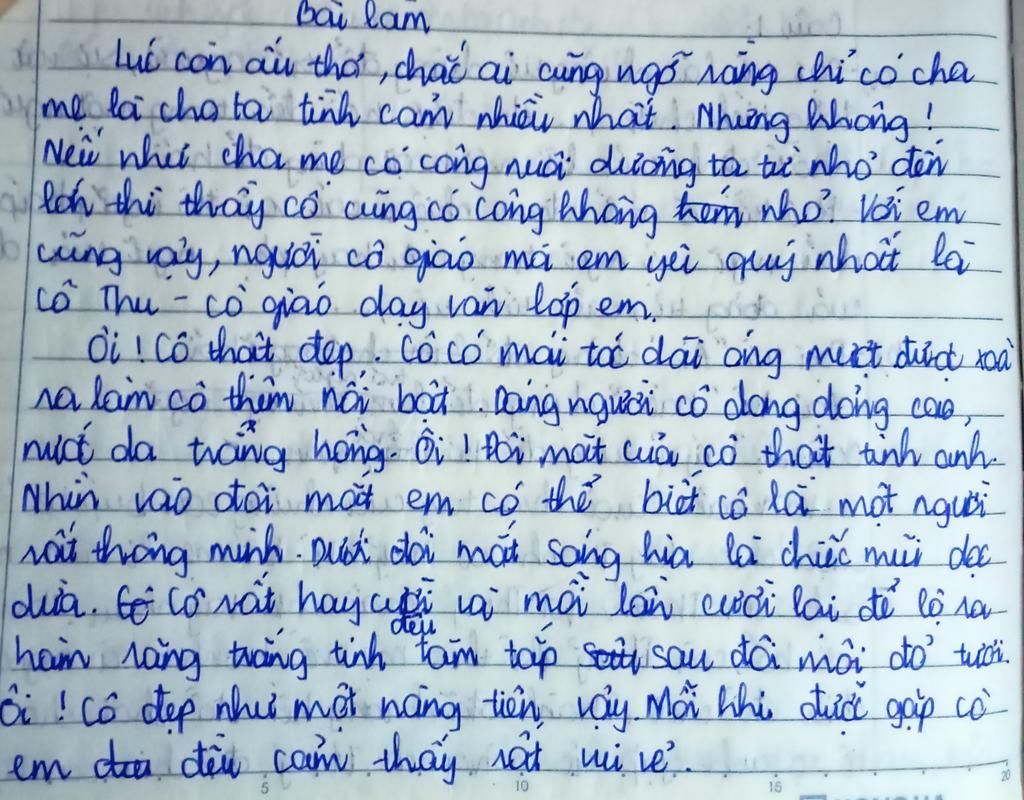 Bài làm
Lúc còn ấu thơ, chắc ai cũng ngỡ rằng chỉ có cha
mẹ là cho ta tình cảm nhiều nhất. Nhưng không!
Nếu như cha mẹ có công nuôi dưỡng ta từ nhỏ đến
lớn thì thầy cô cũng có công không nhỏ. Với em
cũng vậy, người cô giáo mà em yêu quý nhất là
cô Thu - cô giáo dạy văn lớp em.
Ôi! Cô thật đẹp. Cô có mái tóc dài óng mượt được xoã
ra làm cô thêm nổi bật. Dáng người cô dong dỏng cao,
nước da trắng hồng. Ôi! Đôi mắt của cô thật tinh anh.
Nhìn vào đôi mắt em có thể biết cô là một người
rất thông minh. Dưới đôi mắt sáng kia là chiếc mũi dọc
dừa. Cô rất hay cười và mỗi lần cười lại để lộ ra
hàm răng trắng tinh đều tăm tắp sau đôi môi đỏ tươi.
Ôi! Cô đẹp như một nàng tiên vậy. Mỗi khi được gặp cô
em đều cảm thấy rất vui vẻ.
5 10 15 20